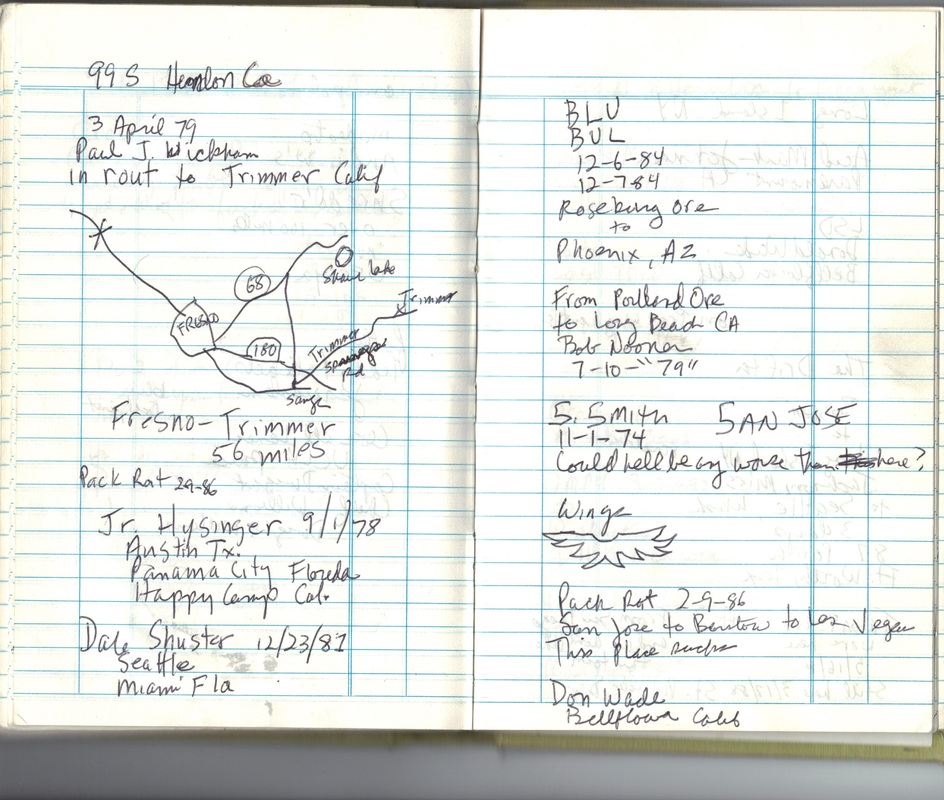 99 S Herndon Cal
3 April 79
Paul J. Wickham
in rout to Trimmer Calif
68
Shaver Lake
FRESNO
Trimmer
180
Trimmer
Rd
Sanger
Fresno-Trimmer
56 miles
Pack Rat 2-9-86
Jr. Hysinger 9/1/78
Austin Tx.
Panama City Floreda
Happy Camp Cal.
Dale Shuster 12/23/81
Seattle
Miami Fla
BLU
BUL
12-6-84
12-7-84
Roseburg Ore
to
Phoenix, AZ
From Portland Ore
to Long Beach CA
Bob Noonen
7-10-"79"
S. Smith SAN JOSE
11-1-74
Could hell be any worse than here?
Wings
Pack Rat 2-9-86
San Jose to Barstow to Las Vegas
This place sucks
Don Wade
Bellflower Calif